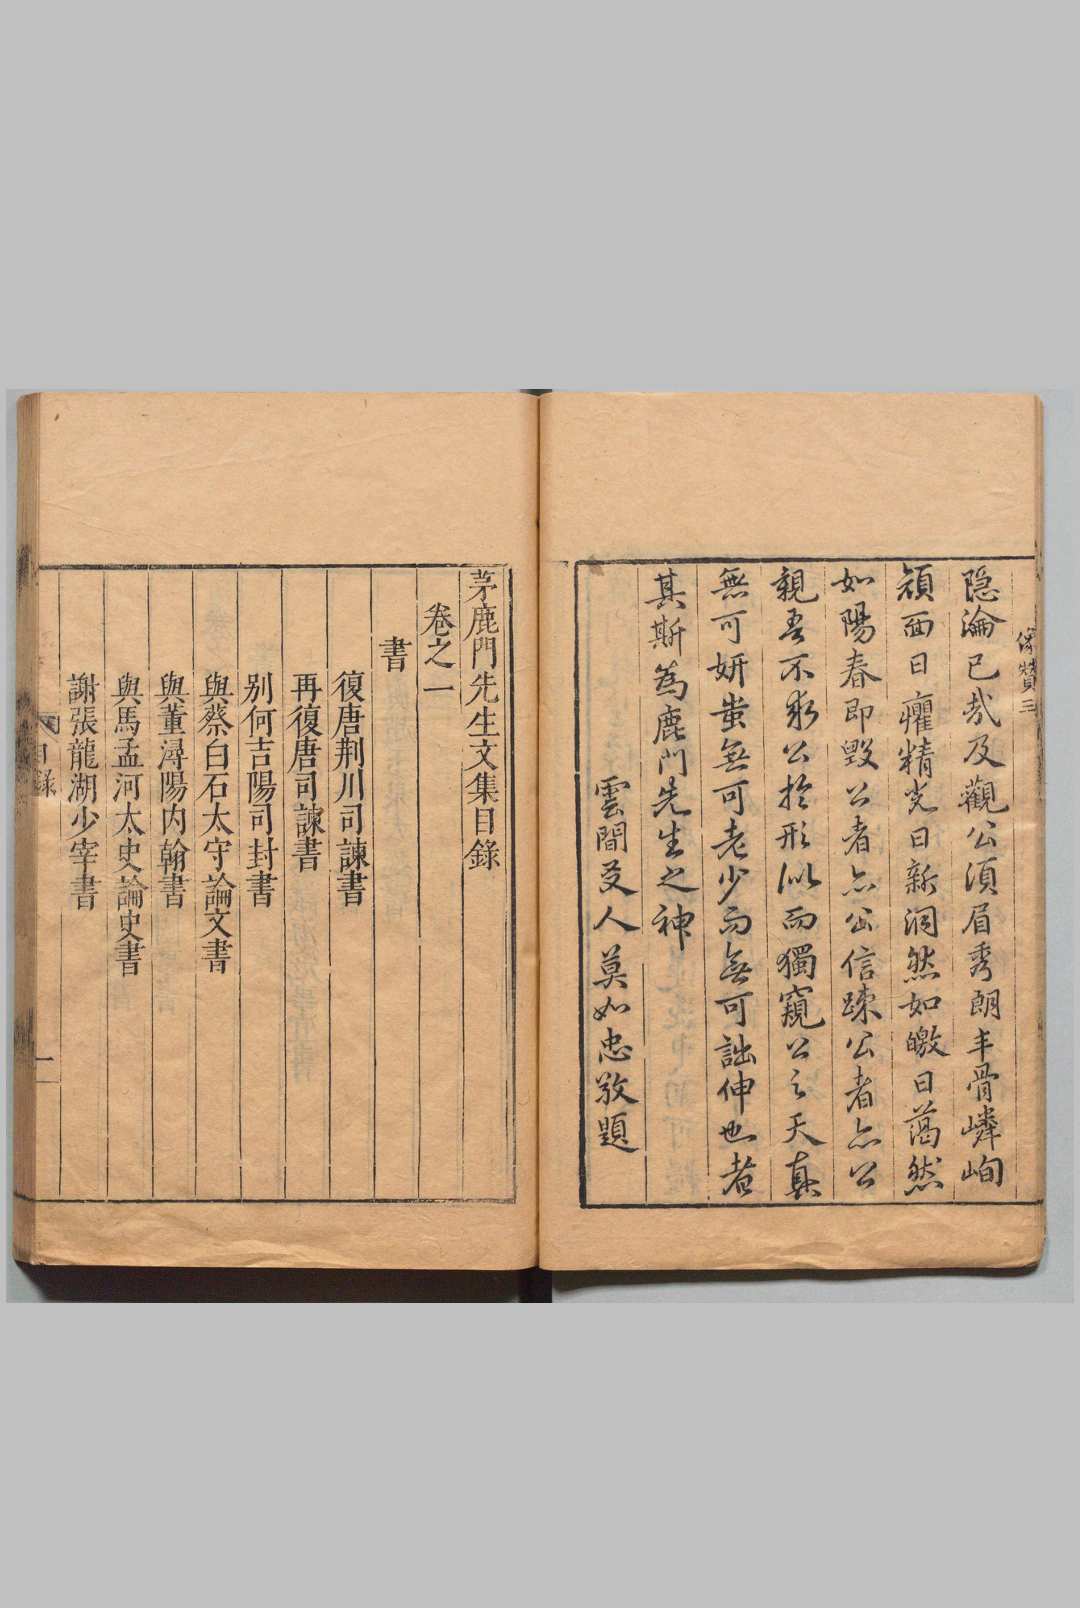 像贊三
隱淪已哉及觀公須眉秀朗丰骨嶙峋
頎面日癯精光日新洞然如皦日藹然
如陽春即毀公者亦公信踈公者亦公
親吾不求公於形似而獨窺公之天真
無可妍蚩無可老少而無可詘伸也者
其斯為鹿門先生之神
雲間友人莫如忠敬題
茅鹿門先生文集目錄
卷之一
書
復唐荆川司諫書
再復唐司諫書
别何吉陽司封書
與蔡白石太守論文書
與董潯陽内翰書
與馬孟河太史論史書
謝張龍湖少宰書
目錄
一